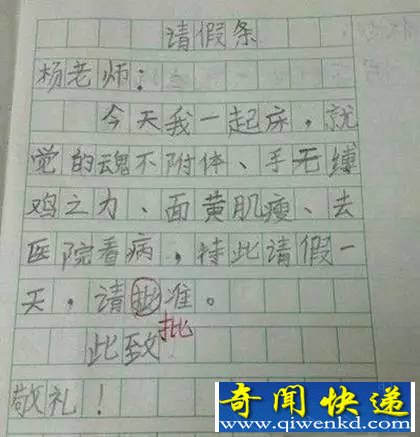 请假条
杨老师：
今天我一起床，就
觉的魂不附体、手无缚
鸡之力、面黄肌瘦、去
医院看病，特此请假一
天，请批准。
批
此致
敬礼！
奇闻快递
www.qiwenkd.com